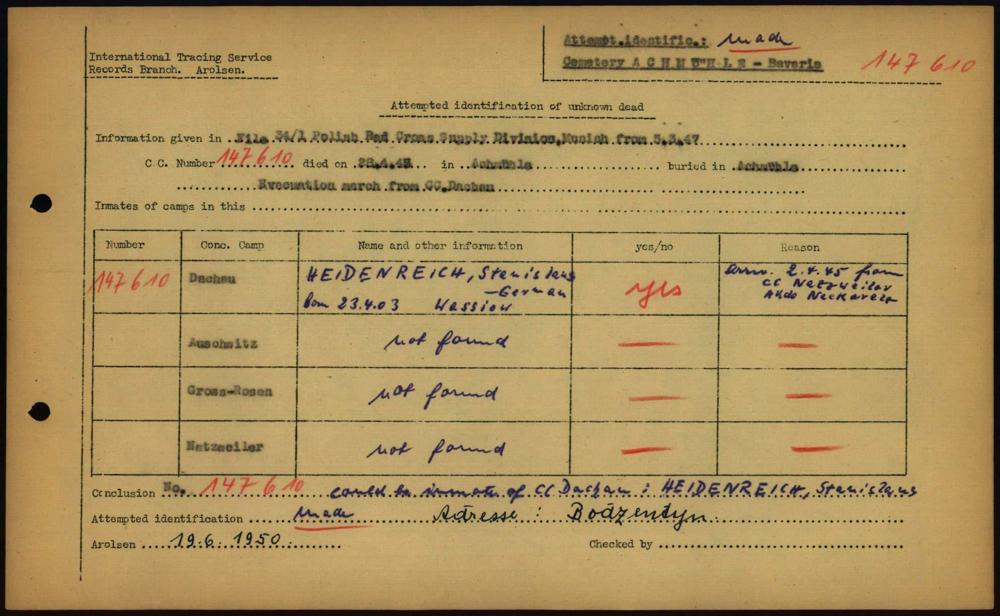 International Tracing Service
Records Branch. Arolsen.
Attempt.identific.: made
Cemetery A C H M Ü H L E - Bavaria
147 610
Attempted identification of unknown dead
Information given in File 34/1 Polish Red Cross Supply Division, Munich from 5.3.47
C.C. Number 147610 died on 28.4.45 in Achmühle buried in Achmühle
Evacuation march from CC.Dachau
Inmates of camps in this
Number Conc. Camp Name and other information yes/no Reason
147610 Dachau HEIDENREICH, Stanislaus - German yes arriv. 2.4.45 from
born 23.4.03 Wassiow CC Natzweiler
Kkdo Neckarelz
Auschwitz not found — —
Gross-Rosen not found — —
Natzweiler not found — —
Conclusion No. 147 6 10 could be inmate of CC Dachau: HEIDENREICH, Stanislaus
Attempted identification made Adresse: Bodzentyn
Arolsen 19.6. 1950 Checked by